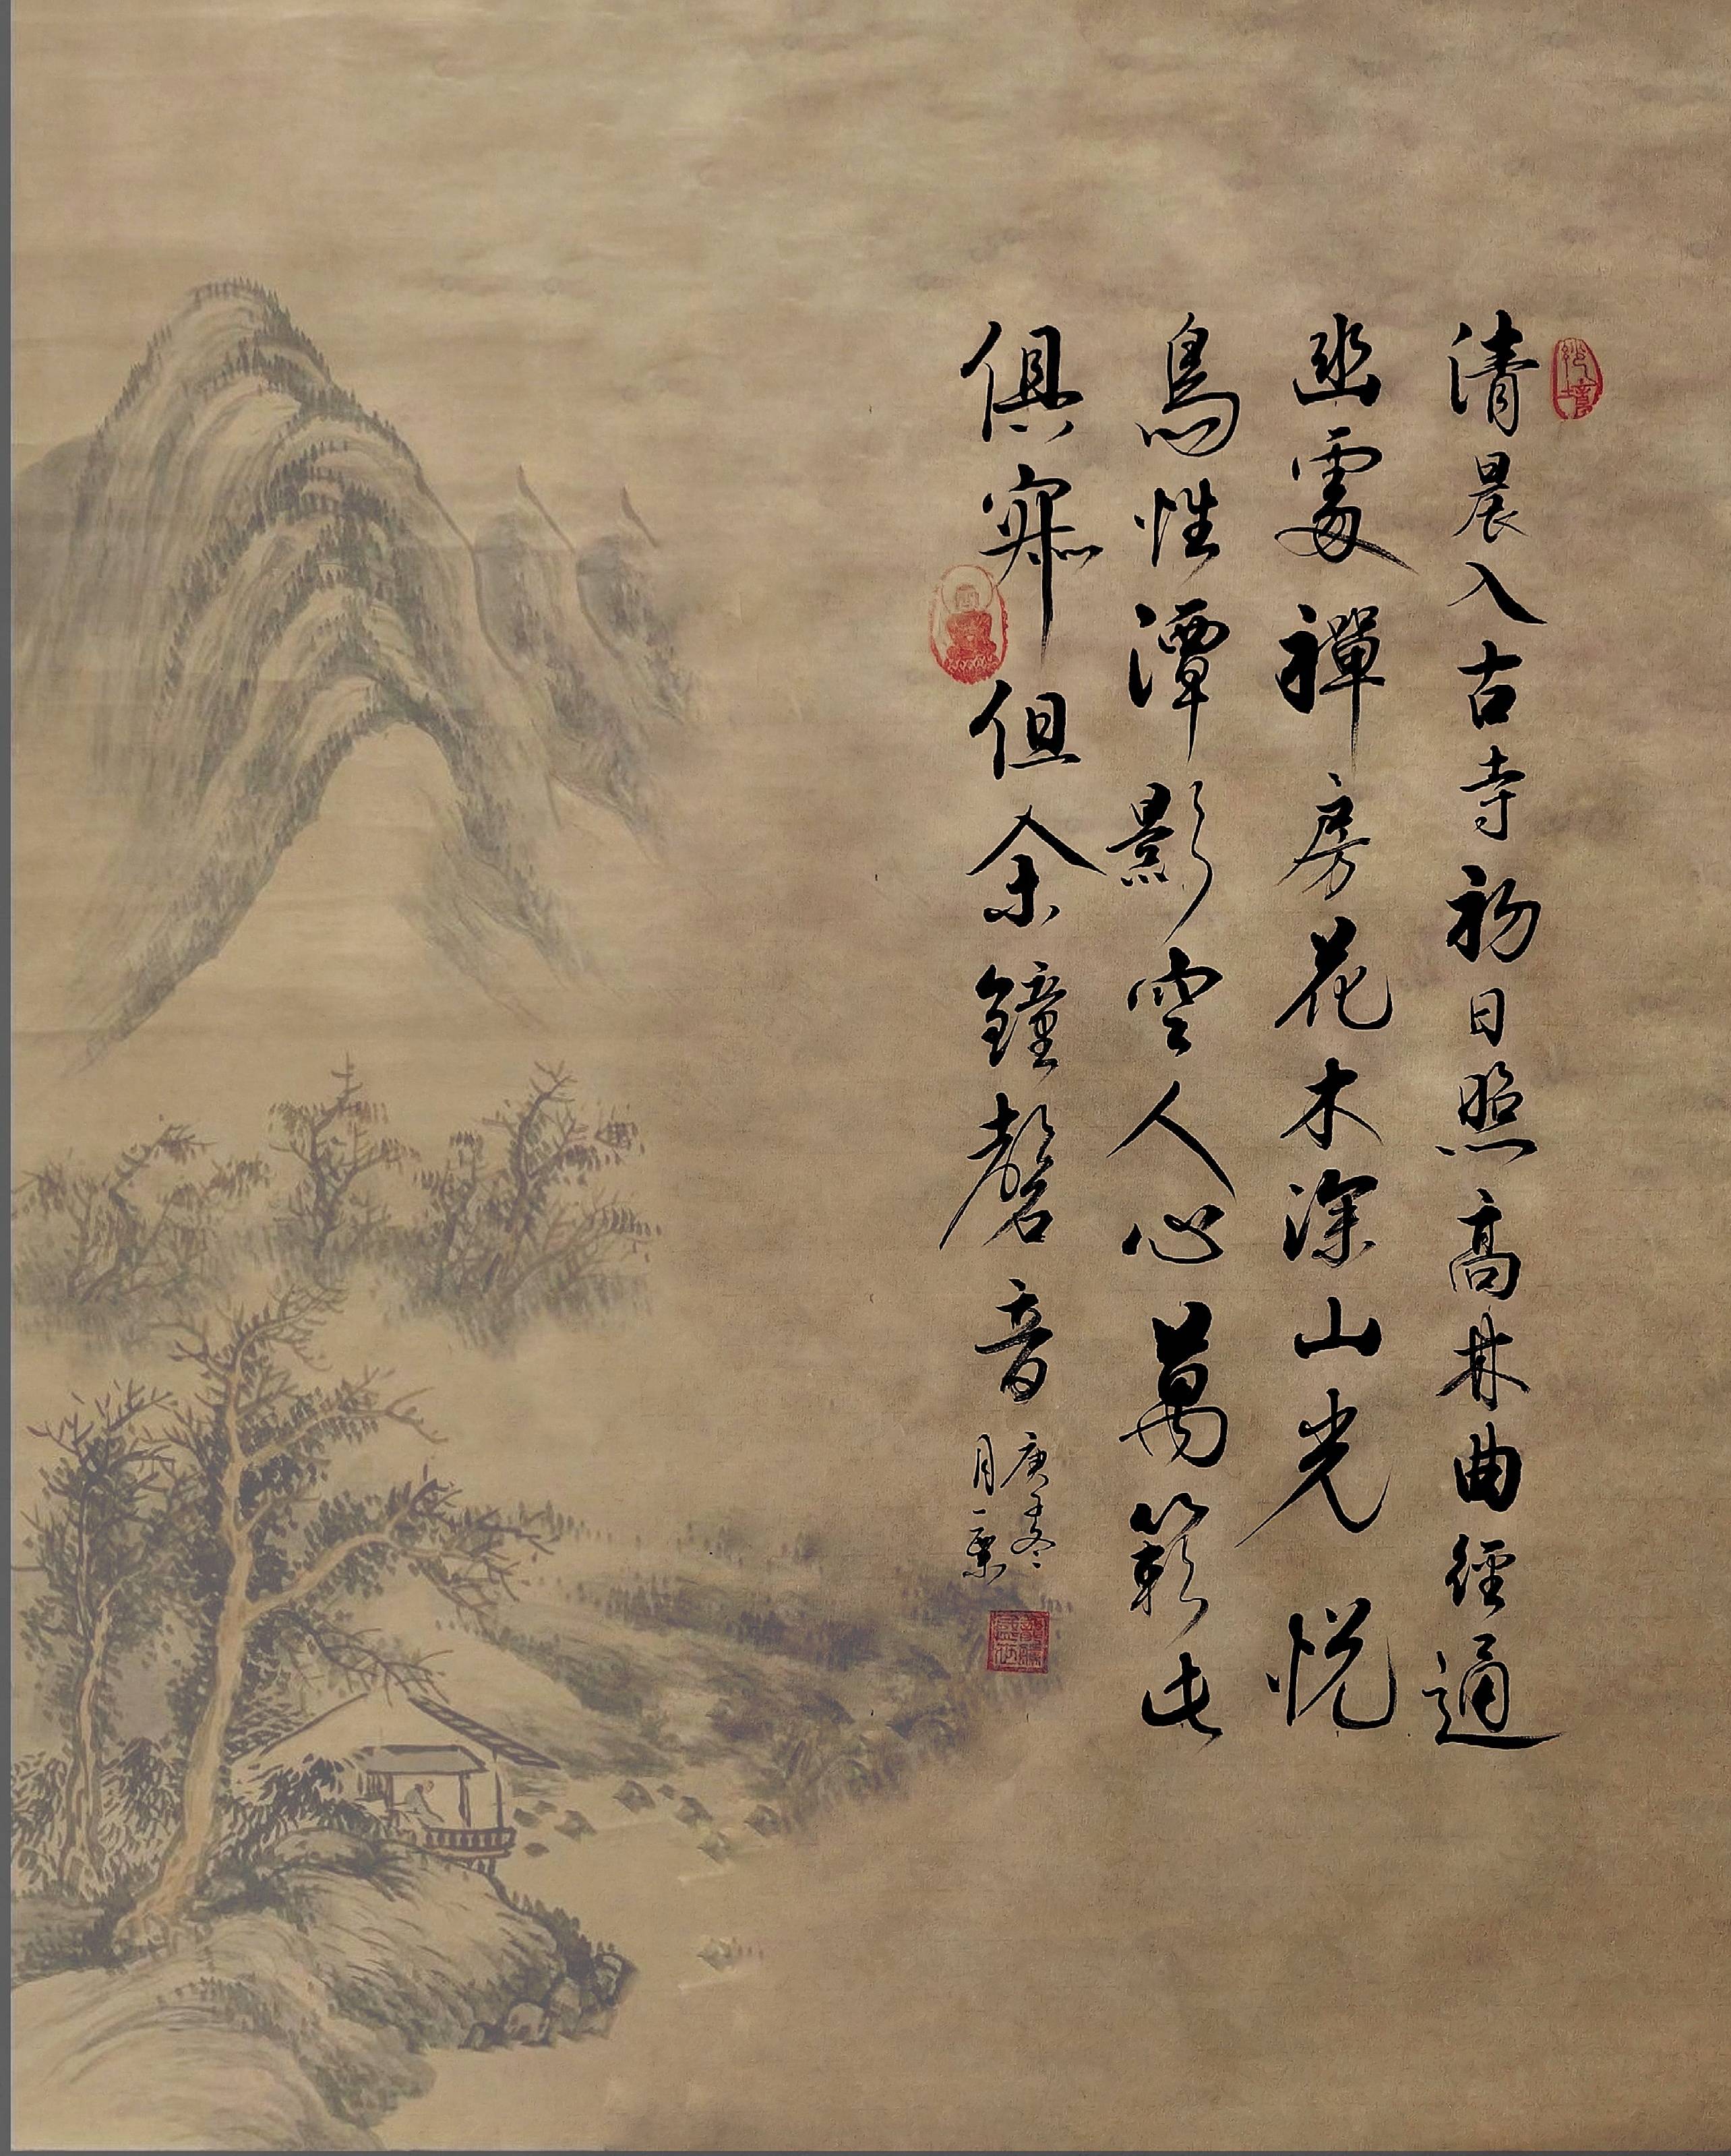 清晨入古寺初日照高林曲徑通
幽處禪房花木深山光悅
鳥性潭影空人心萬籟此
俱寂但余鐘磬音
庚子冬
月一